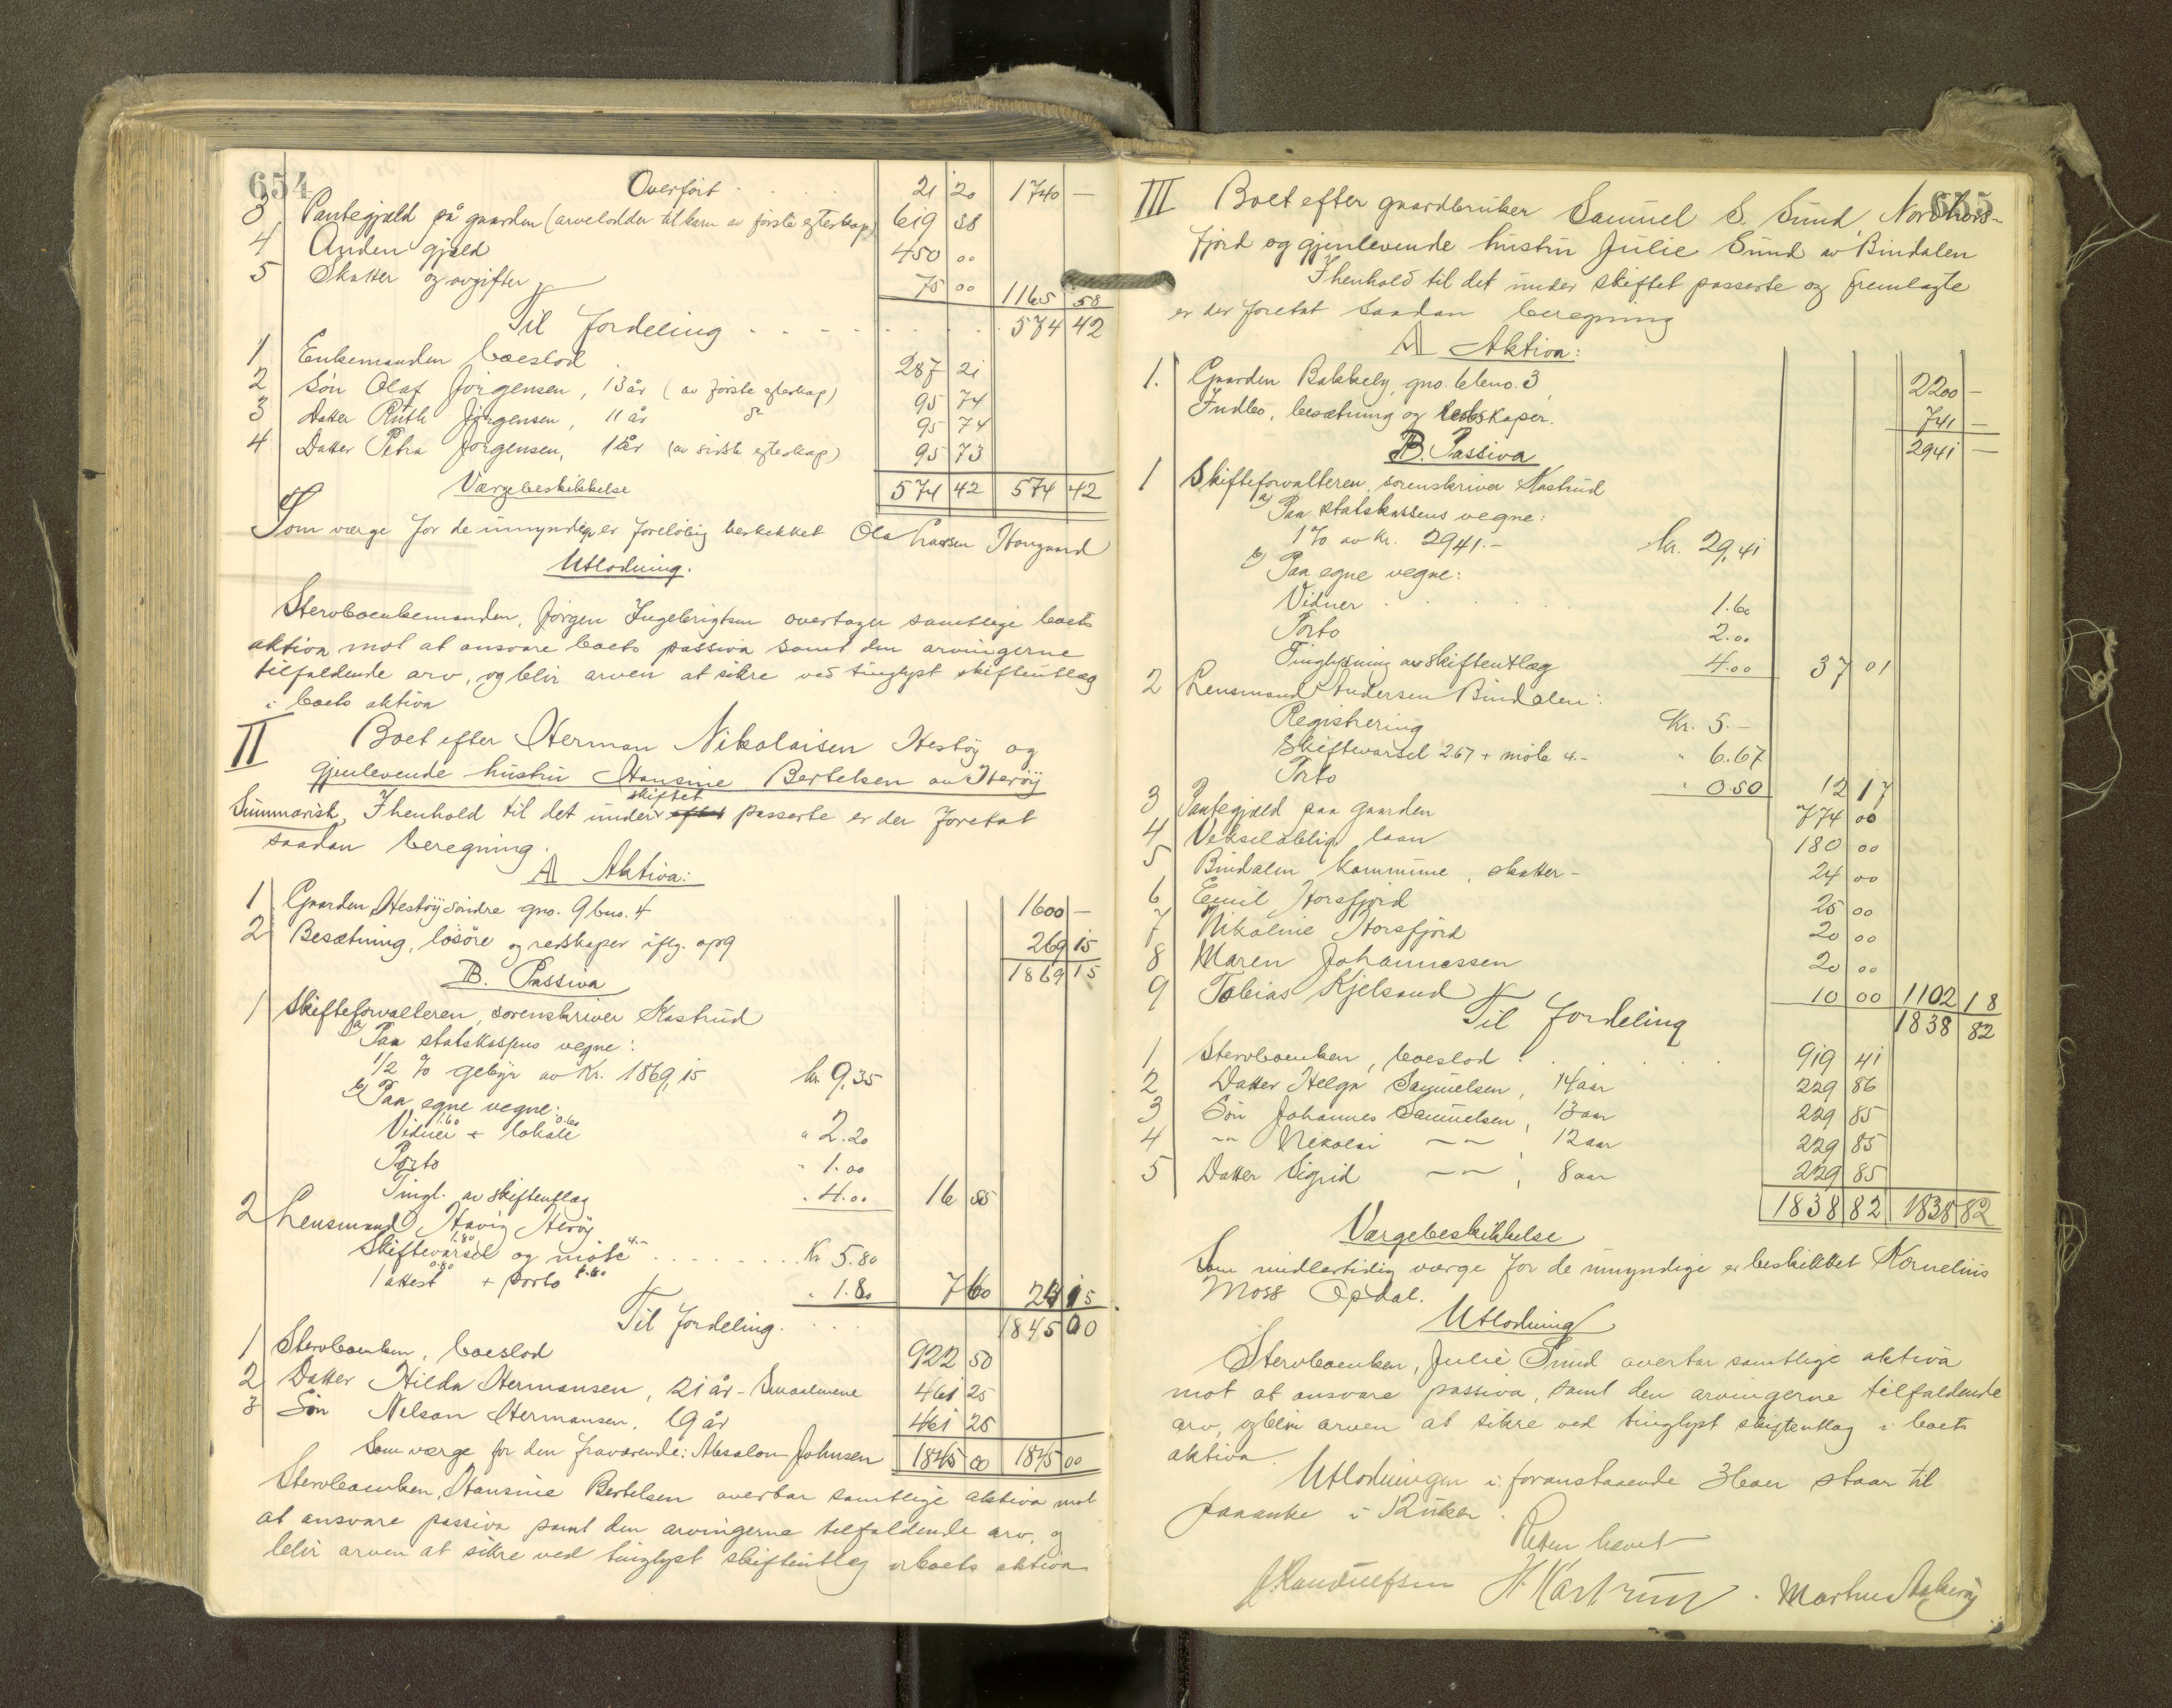 654
Overført . . . . 21 20 1740 —
3 Pantegjæld på gaarden (arvelodder til barn av første egteskap) 619 38
4 Anden gjæld 450 00
5 Skatter og avgifter 75 00 1165 58
Til fordeling . . . . . . . 574 42
1 Enkemanden boeslod 287 21
2 Søn Olaf Jørgensen, 13 år (av første egteskap) 95 74
3 Datter Ruth Jørgensen, 11 år 95 74
4 Datter Petra Jørgensen, 1 år (av sidste egteskap) 95 73
Værgebeskikkelse 574 42 574 42
Som værge for de umyndige er foreløbig beskikket Ola Larsen Haugaard
Utlodning.
Stervboenkemanden, Jørgen Ingebrigtsen overtager samtlige boets
aktiva mot at ansvare boets passiva samt den arvingerne
tilfaldende arv, og blir arven at sikre ved tinglyst skifteutlæg
i boets aktiva
II Boet efter Herman Nikolaisen Hestøy og
gjenlevende hustru Hansine Bertelsen av Herøy
Summarisk, I henhold til det under skiftet passerte er der foretat
saadan beregning.
A Aktiva:
1 Gaarden Hestøy søndre gno. 9 bno. 4 1600 —
2 Besætning, løsøre og redskaper iflg. opg 269 15
B. Passiva 1869 15
1 Skifteforvalteren, sorenskriver Kastrud
a) Paa statskassens vegne:
1/2 % gebyr av Kr. 1869,15 kr. 9,35
b) Paa egne vegne:
Vidner 1.60 + lokale 0.60 " 2.20
Porto " 1.00
Tingl. av skifteutlæg " 4.00 16 55
2 Lensmand Havig Herøy
Skiftevarsel 1.80 og møte 4.- . . . . Kr 5.80
1 attest 0.80 + porto 1.00 " 1.80 7 60 24 15
Til fordeling. . . . 1845 00
1 Stervboenken, boeslod 922 50
2 Datter Hilda Hermansen, 21 år - 461 25
3 Søn Nelson Hermansen, 19 år 461 25
Som værge for den fraværende: Absalon Johnsen 1845 00 1845 00
Stervboenken, Hansine Bertelsen overtar samtlige aktiva mot
at ansvare passiva samt den arvingerne tilfaldende arv, og
blir arven at sikre ved tinglyst skifteutlæg i boets aktiva
655
III Boet efter gaardbruker Samuel S. Sund Nordhors-
fjord og gjenlevende hustru Julie Sund av Bindalen
I henhold til det under skiftet passerte og fremlagte
er der foretat saadan beregning
A Aktiva:
1. Gaarden Bakkely, gno. 6 bno. 3 2200 —
Indbo, besætning og redskaper. 741 —
B. Passiva 2941 —
1 Skifteforvalteren, sorenskriver Kastrud
a) Paa statskassens vegne:
1 % av Kr. 2941.- kr. 29,41
b) Paa egne vegne:
Vidner . . . . 1.60
Porto 2.00
Tinglysning av skifteutlæg 4.00 37 01
2 Lensmand Andersen Bindalen:
Registrering Kr. 5.-
Skiftevarsel 2.67 + møte 4.- " 6.67
Porto " 0.50 12 17
3 Pantegjæld paa gaarden 774 00
4 Vekselobliga laan 180 00
5 Bindalen kommune, skatter - 24 00
6 Emil Horsfjord 25 00
7 Nikoline Horsfjord 20 00
8 Maren Johannessen 20 00
9 Tobias Kjelsand 10 00 1102 18
Til fordeling 1838 82
1 Stervboenken, boeslod . . . . 919 41
2 Datter Helga Samuelsen, 14 aar 229 86
3 Søn Johannes Samuelsen, 13 aar 229 85
4 —"— Nikolai —"— 12 aar 229 85
5 Datter Sigrid —"—, 8 aar 229 85
1838 82 1838 82
Værgebeskikkelse
Som midlertidig værge for de umyndige er beskikket Kornelius
Moss Opdal.
Utlodning
Stervboenken, Julie Sund overtar samtlige aktiva
mot at ansvare passiva, samt den arvingerne tilfaldende
arv, og blir arven at sikre ved tinglyst skifteutlæg i boets
aktiva.
Utlodningen i foranstaaende 3 boer staar til
paaanke i 12 uker.
Retten hævet
H. Kastrud